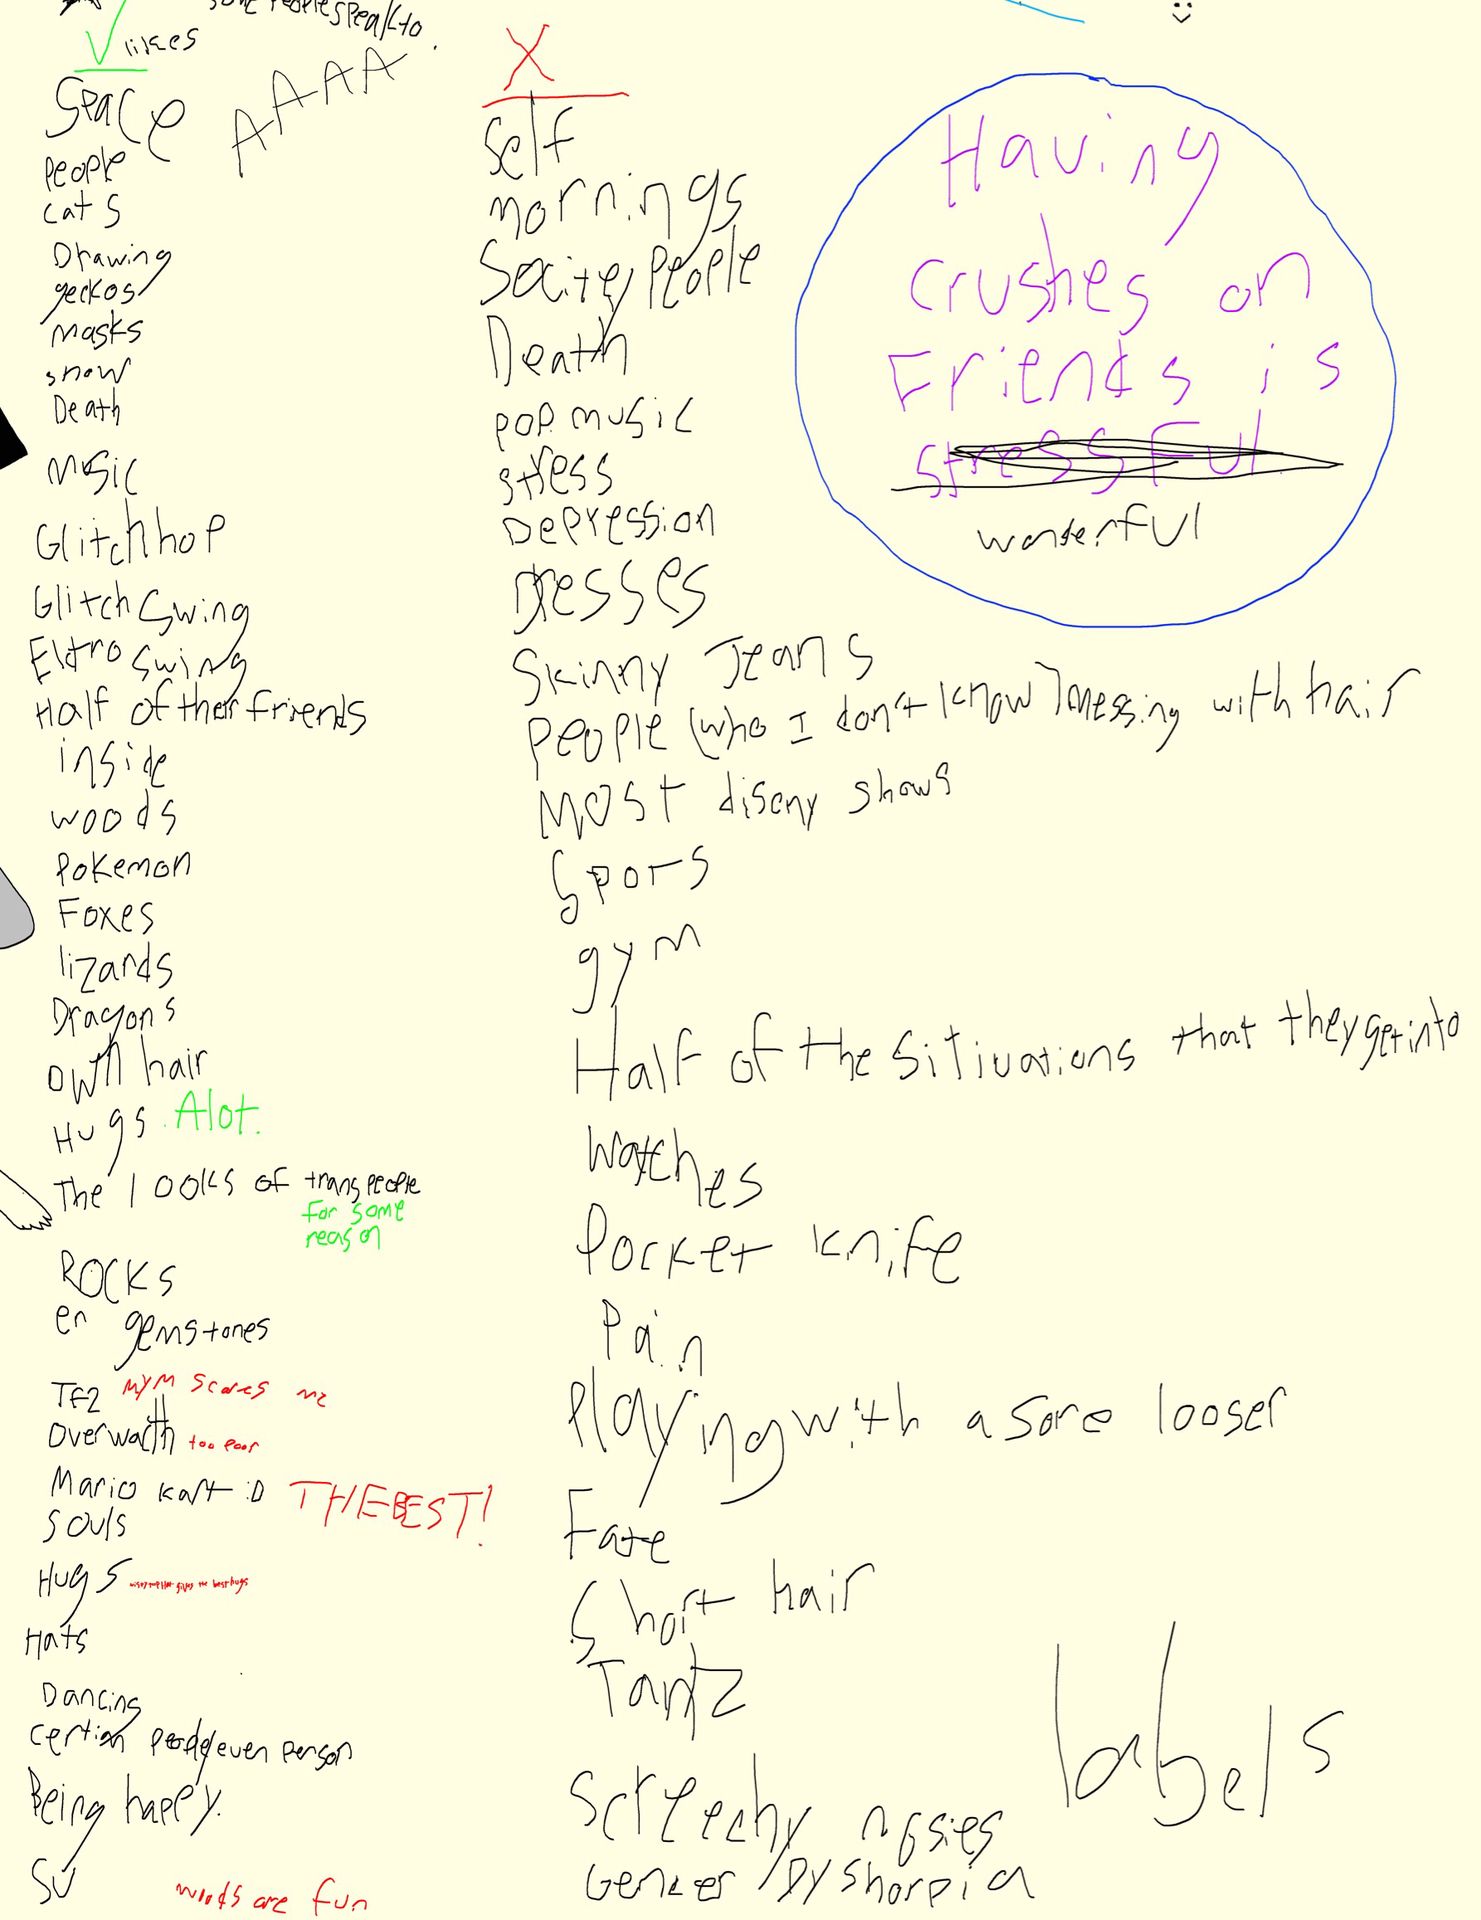 some people speak to.
likes
Space
AAAAA
People
cats
Drawing
geckos
masks
snow
Death
Music
Glitchhop
Glitch Swing
Eltro Swing
Half of their friends
inside
woods
Pokemon
Foxes
lizards
Dragons
own hair
Hugs. Alot.
The looks of trans people
for some
reason
ROCKS
en gemstones
TF2 MYM scares me
Overwacth too poor
Mario kart :D THE BEST!
Souls
Hugs gives the best hugs
Hats
Dancing
certian even person
Being happy.
SU
words are fun
X
Self
mornings
Socitey People
Death
pop music
stress
Depression
Dresses
Skinny Jeans
People (who I don't know) messing with hair
Most diseny shows
Spors
gym
Half of the sitiuations that they get into
Watches
Pocket knife
Pain
Playing with a sore looser
Fate
Short hair
Screechy nosies
Gender Dyshorpia
labels
Having
crushes on
Friends is
stressful
wonderful